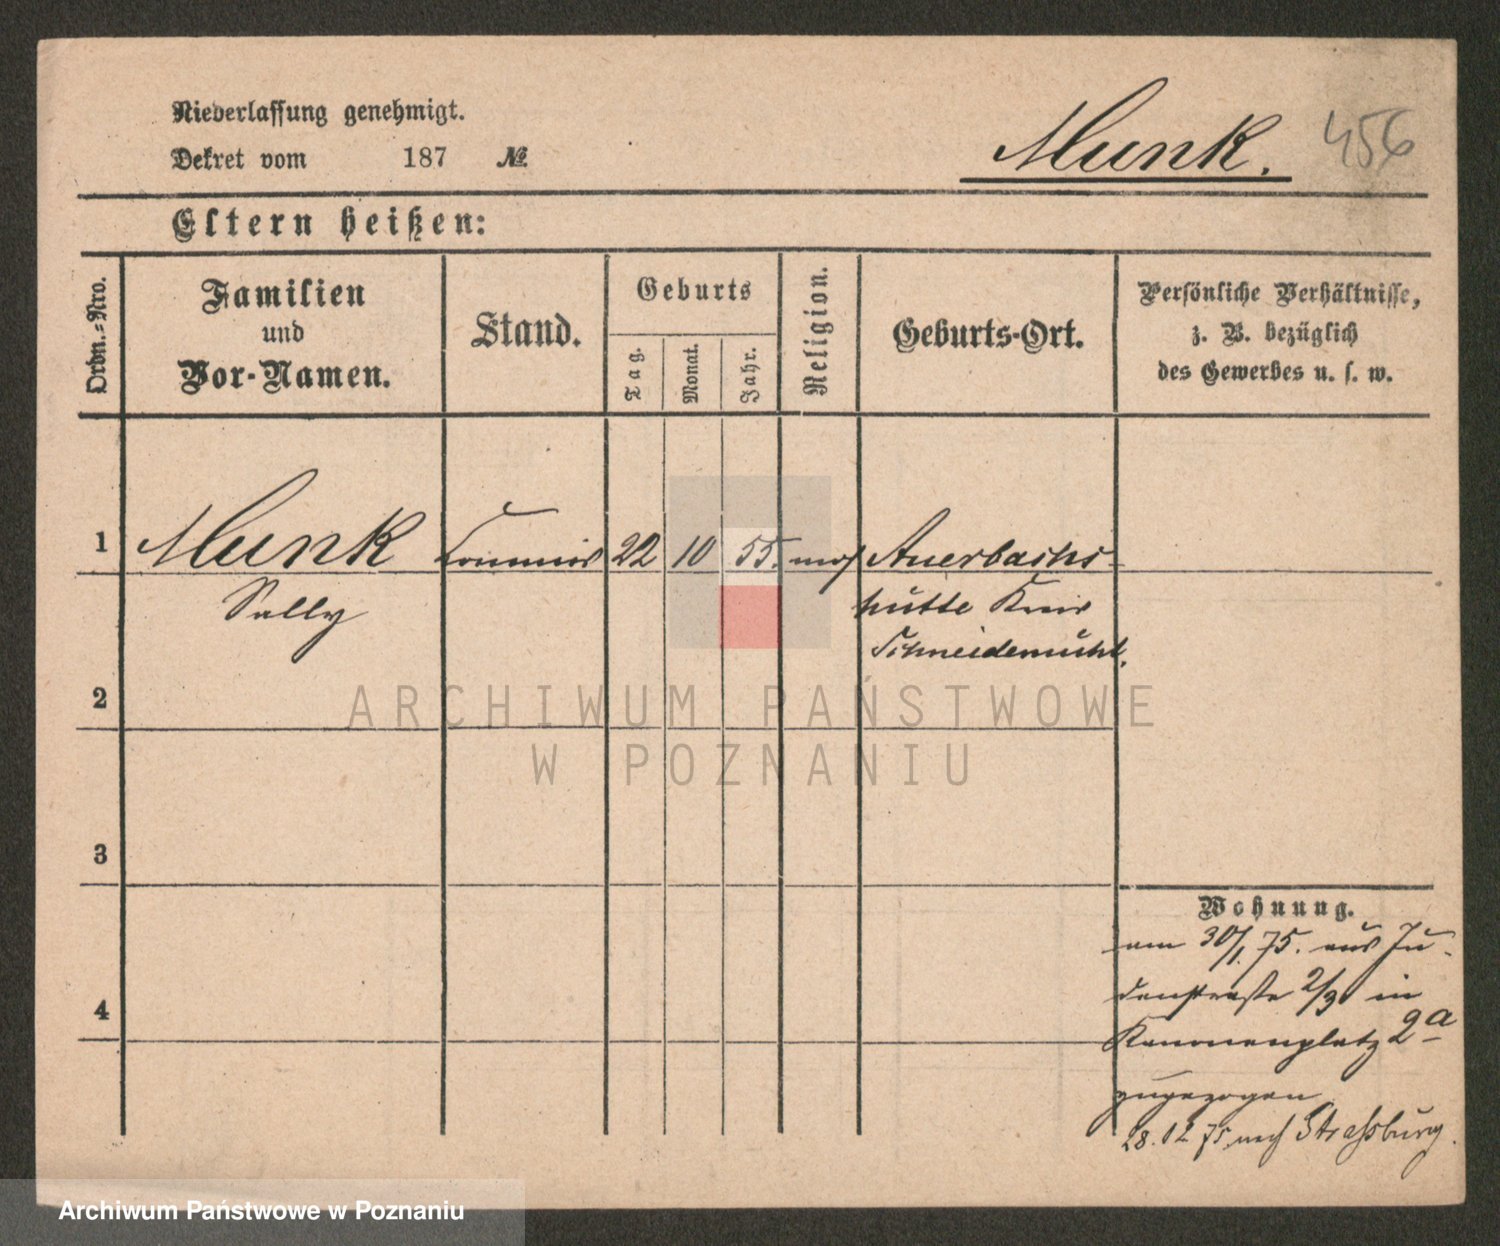 Niederlassung genehmigt.
Dekret vom 187 №
Munk. 456
Eltern heißen:
Ordn.-Nro.
Familien
und
Vor-Namen.
Stand.
Geburts
Tag.
Monat.
Jahr.
Religion.
Geburts-Ort.
Persönliche Verhältnisse,
z. B. bezüglich
des Gewerbes u. s. w.
1 Munk Commis 22 10 55. mos Auerbachs-
Sally hütte Kreis
Schneidemühl.
2
3
4
Wohnung.
am 30/1. 75. aus Ju-
denstraße 2/3 in
Kanonenplatz 2a
zugezogen
28. 12 75 nach Strassburg.
ARCHIWUM PAŃSTWOWE
W POZNANIU
Archiwum Państwowe w Poznaniu